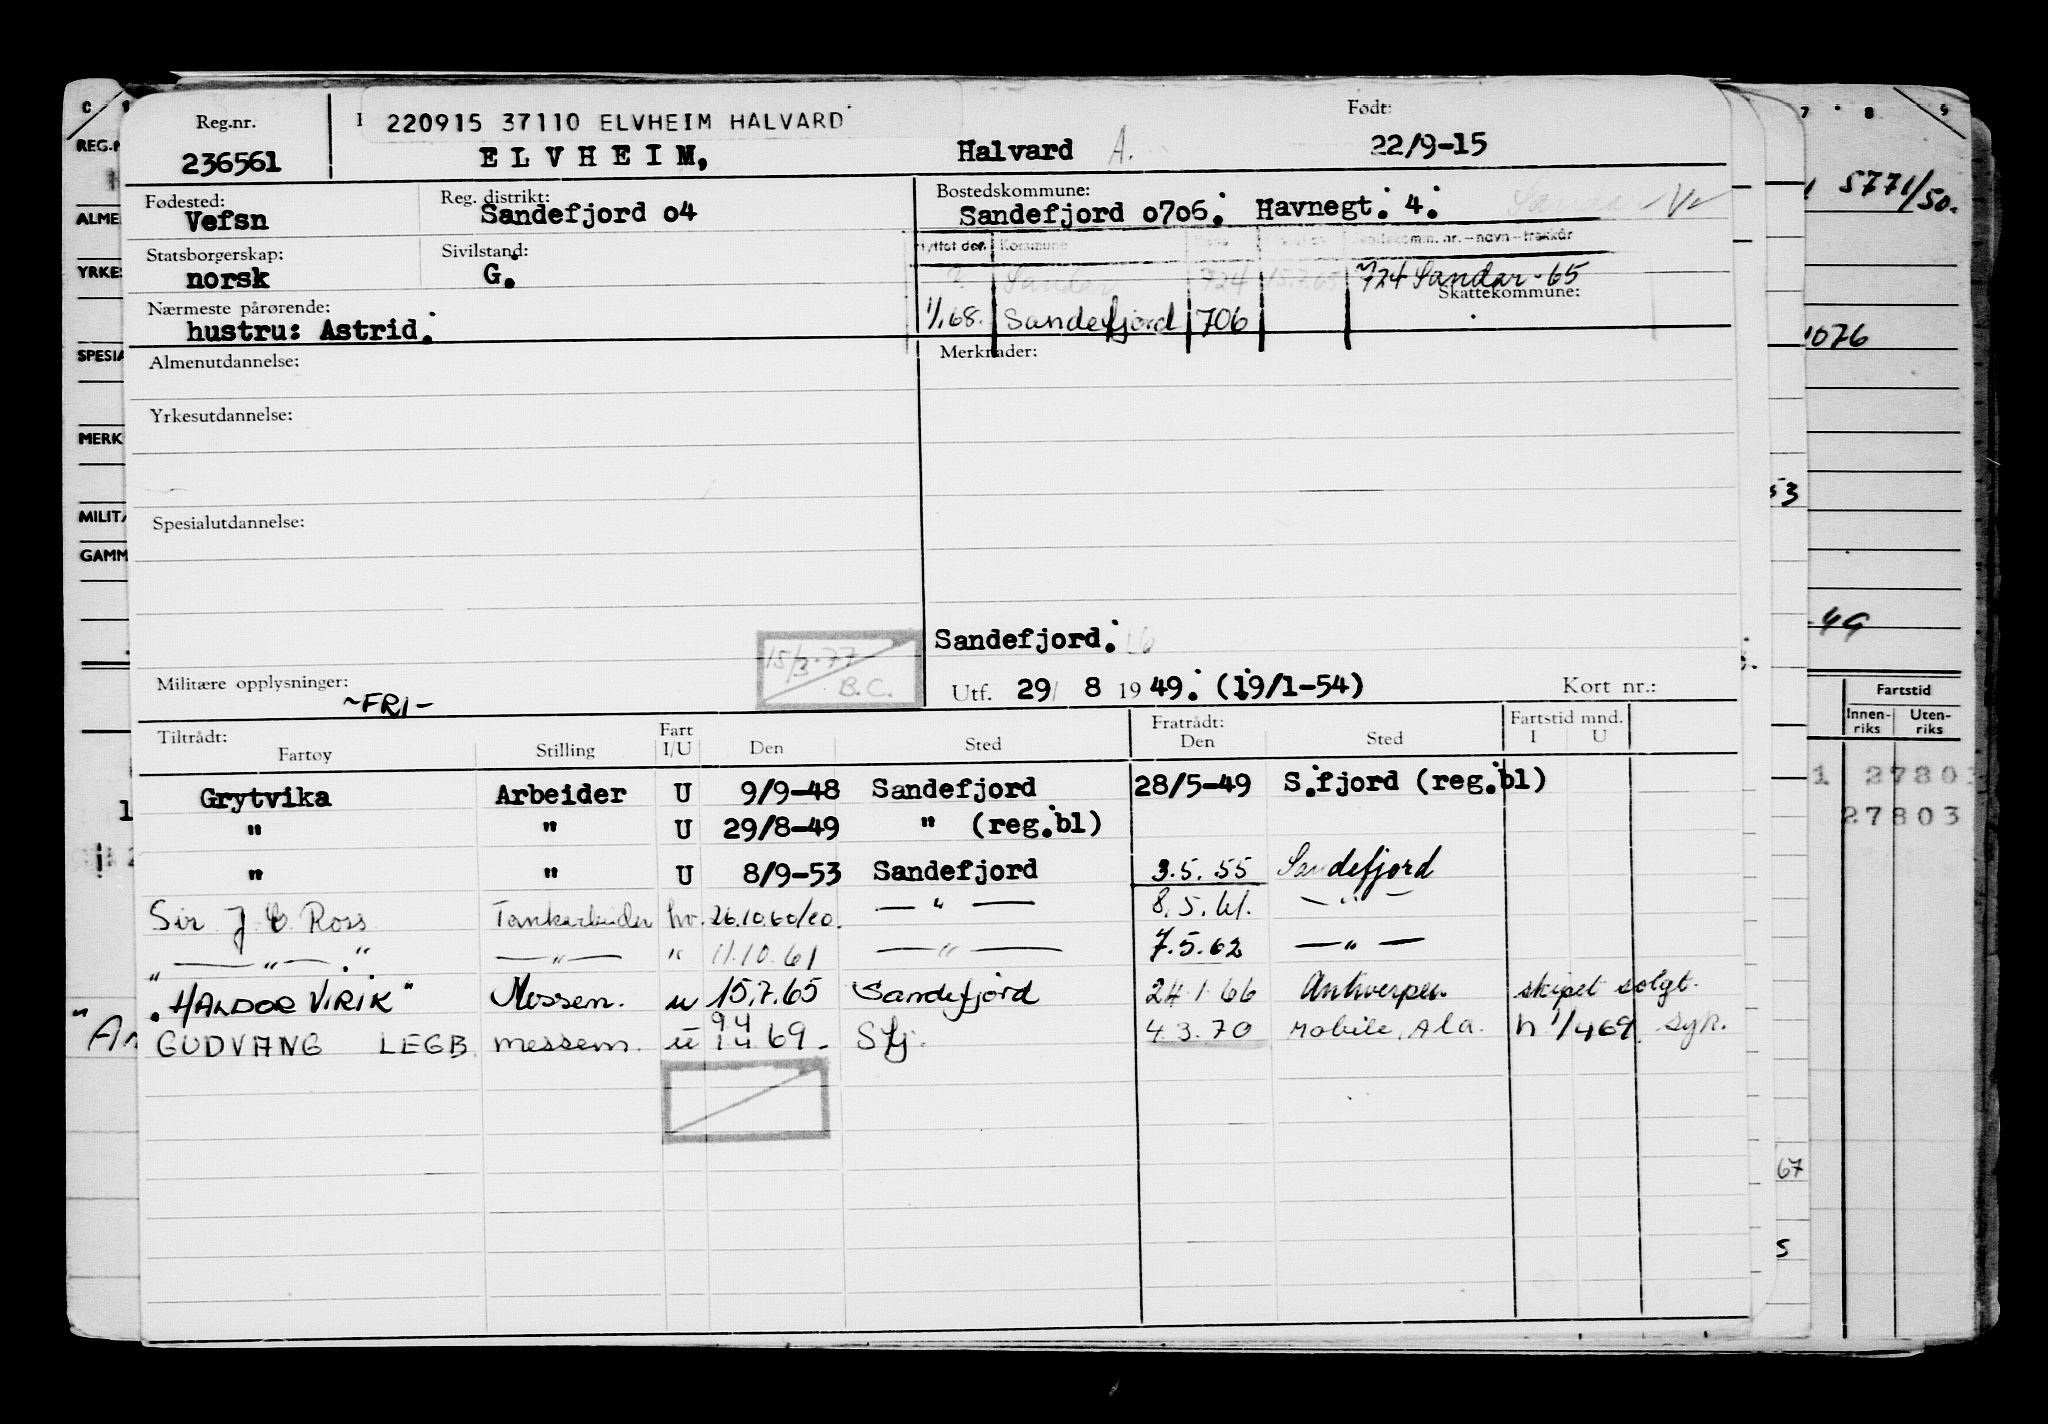 Reg.nr. 220915 37110 ELVHEIM HALVARD Født:
236561 ELVHEIM, Halvard A. 22/9-15
Fødested: Reg. distrikt: Bostedskommune:
Vefsn Sandefjord o4 Sandefjord o7o6. Havnegt. 4. Sandar
Statsborgerskap: Sivilstand: Flyttet den Kommune Skattekomm. nr. - navn - trekkår
norsk G. ? Sandar 724 15.7.65 724 Sandar - 65
Nærmeste pårørende: Skattekommune:
hustru: Astrid. 1/1.68. Sandefjord 706
Almenutdannelse: Merknader:
Yrkesutdannelse:
Spesialutdannelse:
Sandefjord.
15/3-77
B.C.
Militære opplysninger: Utf. 29/ 8 1949. (19/1-54) Kort nr.:
~FRI-
Tiltrådt: Fart Fratrådt: Fartstid mnd.
Fartøy Stilling I/U Den Sted Den Sted I U
Grytvika Arbeider U 9/9-48 Sandefjord 28/5-49 S.fjord (reg.bl)
" " U 29/8-49 " (reg.bl)
" " U 8/9-53 Sandefjord 3.5.55 Sandefjord
Sir J C Ross Tankarbeider hv. 26.10.60/60. — " — 8.5.61. — " —
" — " — . " — " — " 11.10.61 — " — 7.5.62 — " —
"HALDOR VIRIK" Messem. u 15.7.65 Sandefjord 24.1.66 Antwerpen skipet solgt.
GUDVANG LEGB messem. u 9 4 1 4 69 - Sfj. 4.3.70 Mobile, Ala. h 1/4 69. syk.
C
REG.N
ALME
YRKES
SPESIA
MERK
MILITÆ
GAMM
"An
7 8 9
5771/50.
1076
53
49
Fartstid
Innen-riks Uten-riks
1 27803
27803
67
5